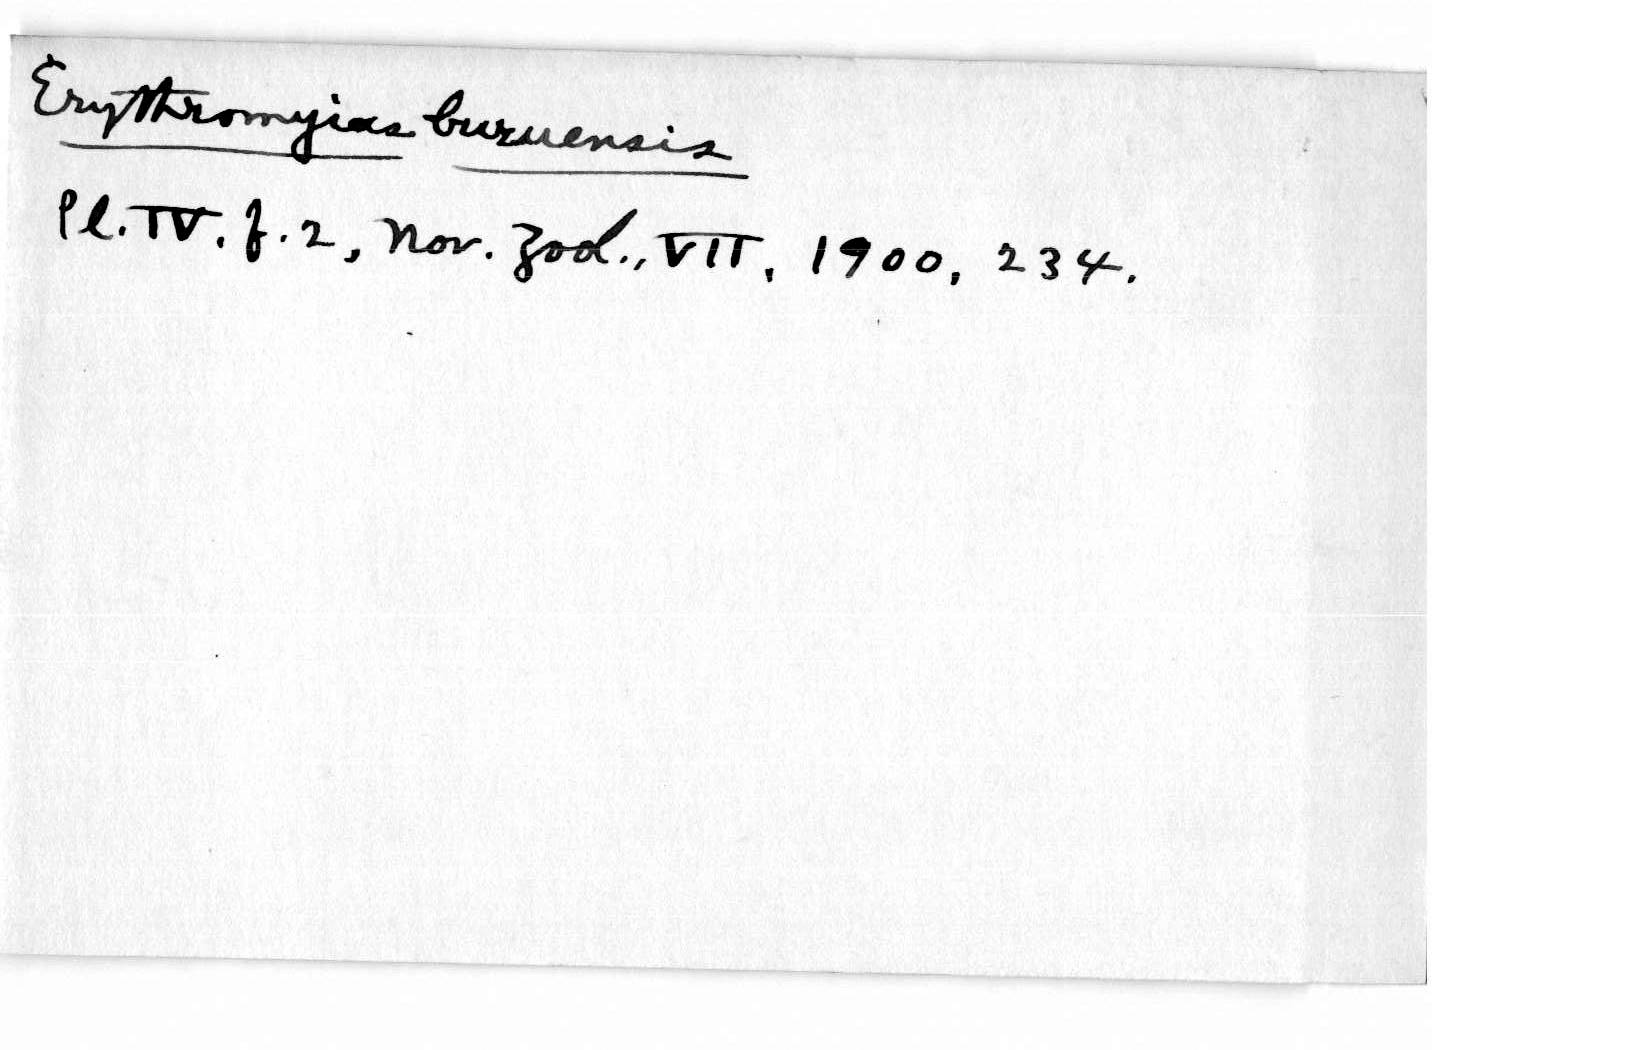 Erythromyias buruensis
Pl. IV. f. 2, Nov. Zool., VII, 1900, 234.